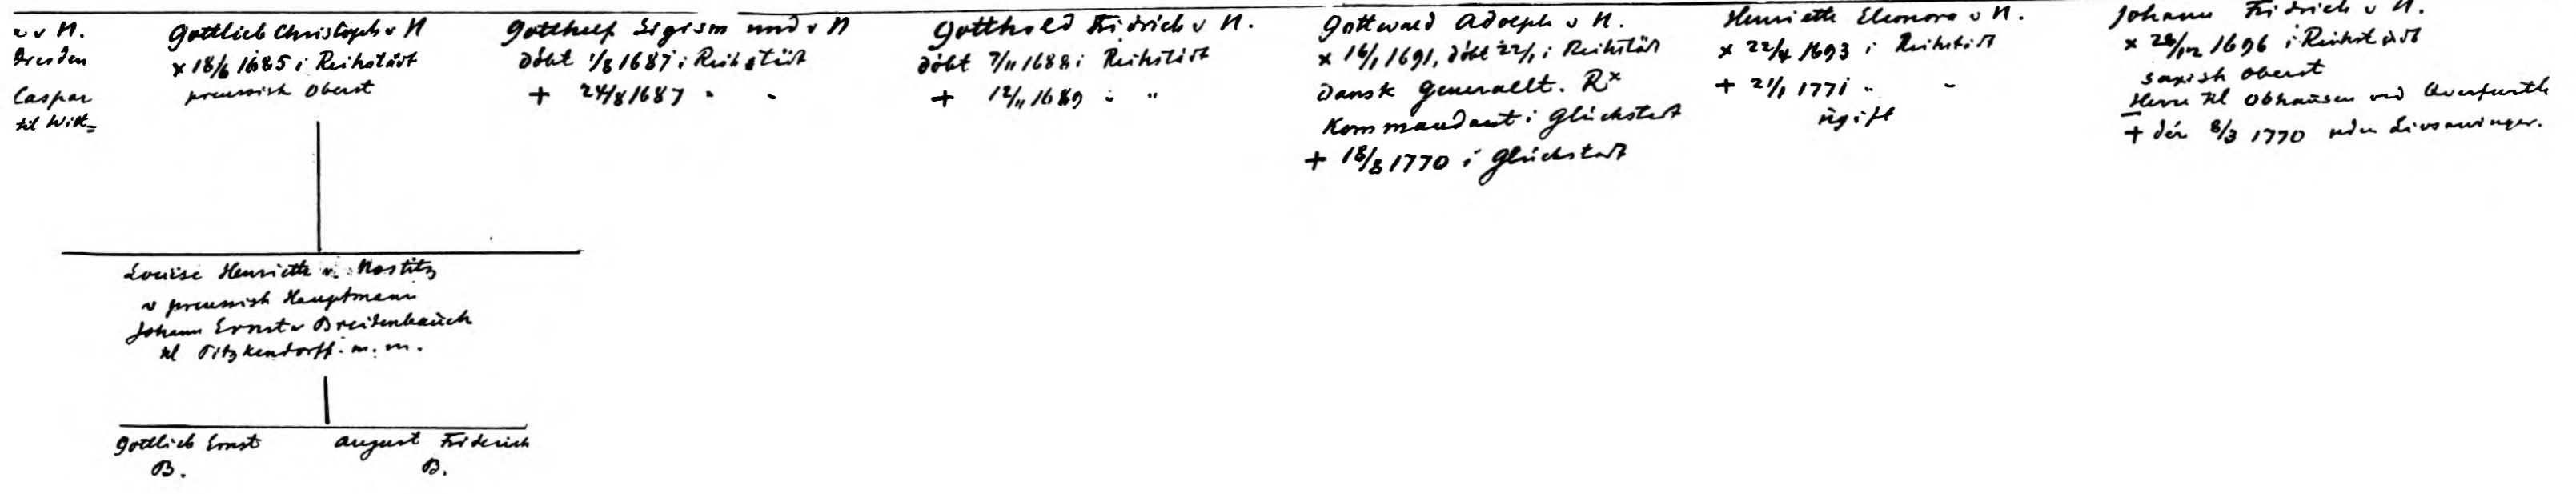 v N.
Dresden
Caspar
til Witt=
Gottlieb Christoph v N
x 18/6 1685 i Reihstädt
preussisk Oberst
Gotthelf Sigismund v N
döbt 1/8 1687 i Reihstädt
+ 24/8 1687 " "
Gotthold Fridrich v N.
döbt 7/11 1688 i Reihstädt
+ 12/11 1689 " "
Gottwald Adolph v N.
x 16/1 1691, döbt 22/1 i Reihstädt
Dansk Generallt. Rx
Kommandant i Glückstadt
+ 18/8 1770 i Glückstadt
Henriette Eleonora v N.
x 22/4 1693 i Reihstädt
+ 21/1 1771 " "
ugift
Johann Fridrich v N.
x 28/12 1696 i Reihstädt
saxisk Oberst
Herre til Obhausen ved Querfurth
+ dér 8/3 1770 uden Livsarvinger.
Louise Henriette v. Nostitz
v preussisk Hauptmann
Johann Ernst v Breitenbauch
til Titzkendorff. m. m.
Gottlieb Ernst
B.
August Friderich
B.